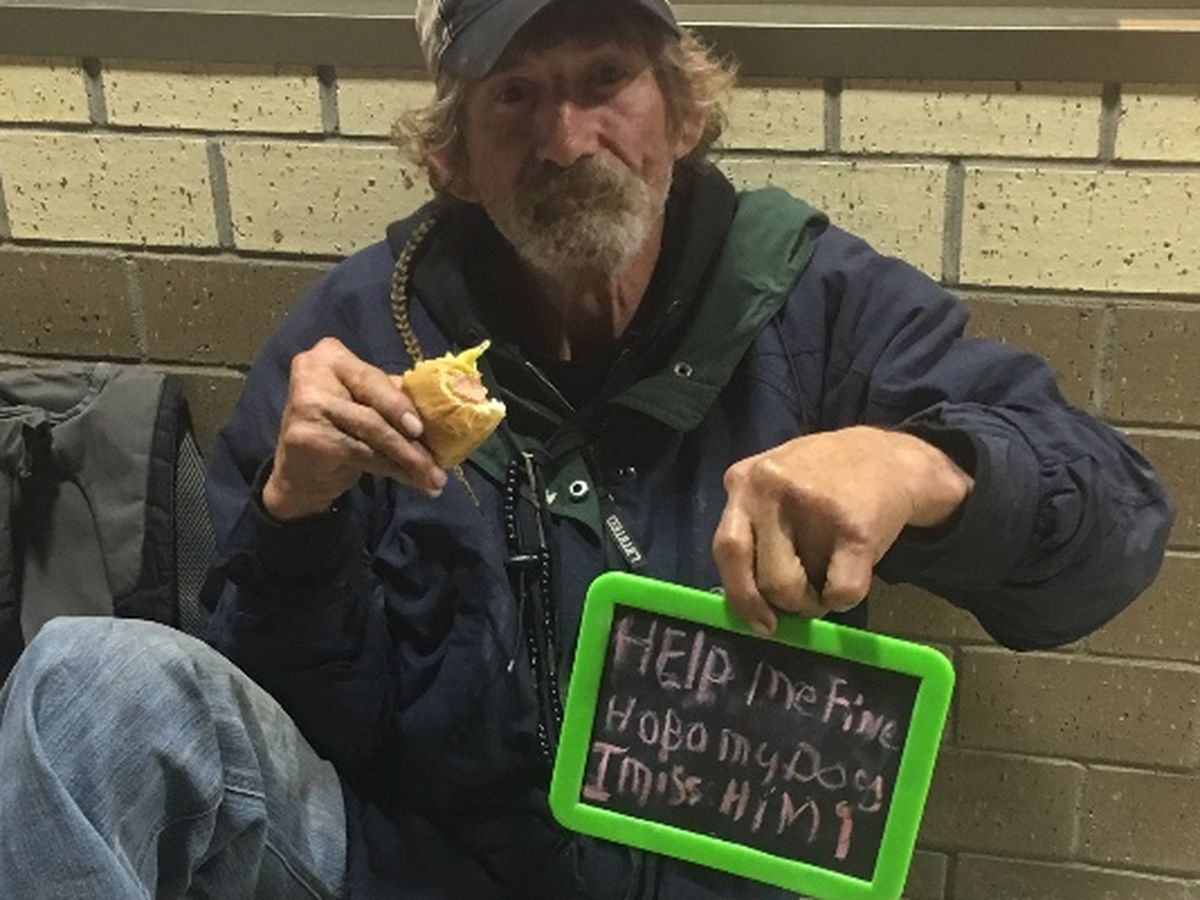 HELP me Fine
HoBo my Dog
I miss HiM!
LIMITED